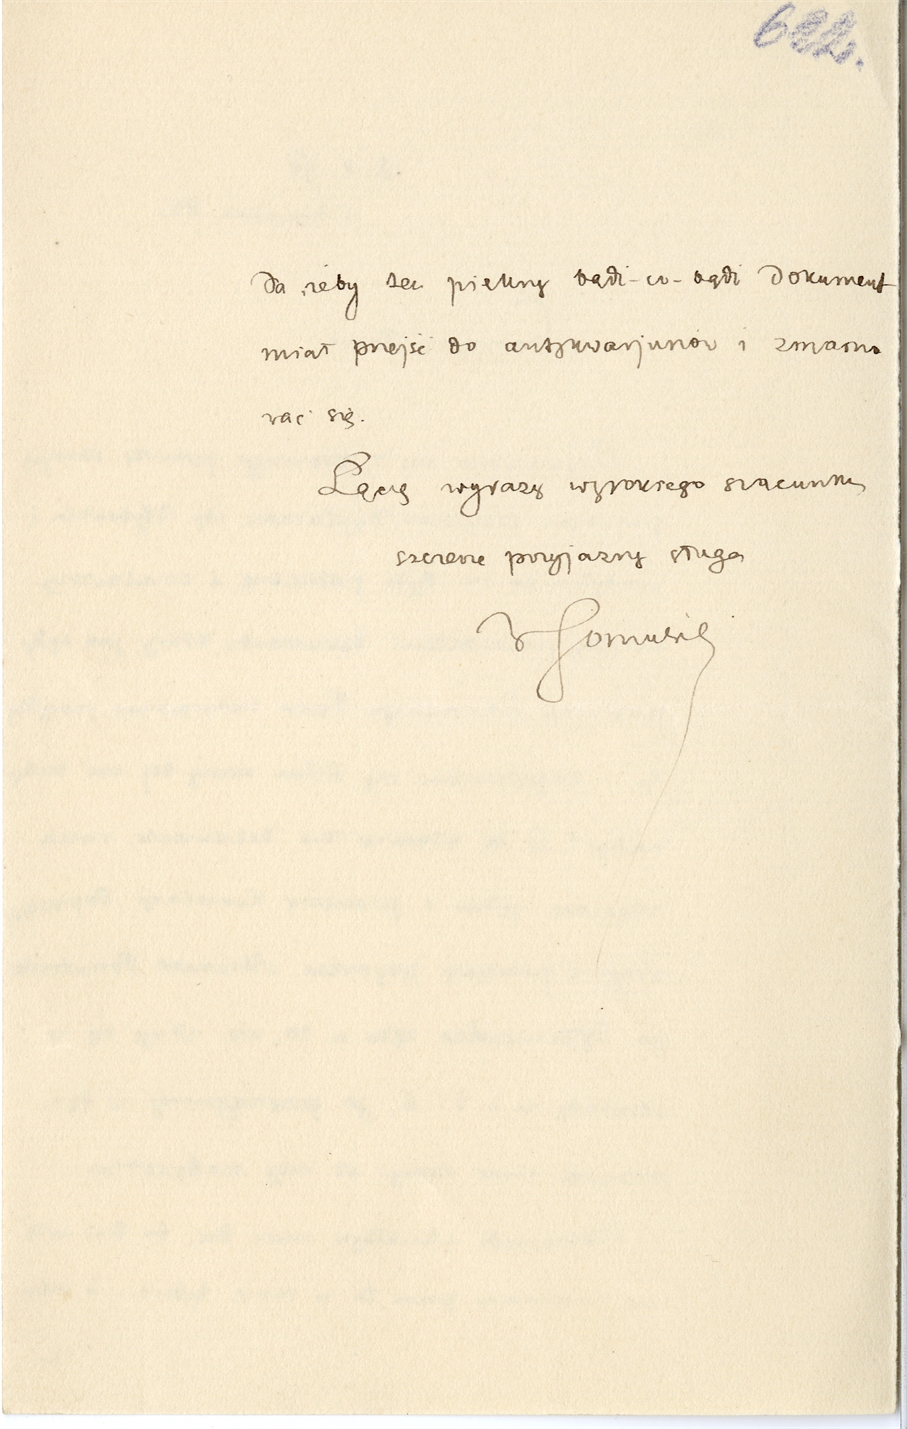 da, żeby ten piękny bądź-co-bądź dokument
miał przejść do antykwarjuszów i zmarno
wać się.
Łączę wyrazy wysokiego szacunku
szczerze przyjazny sługa
W Gomulicki